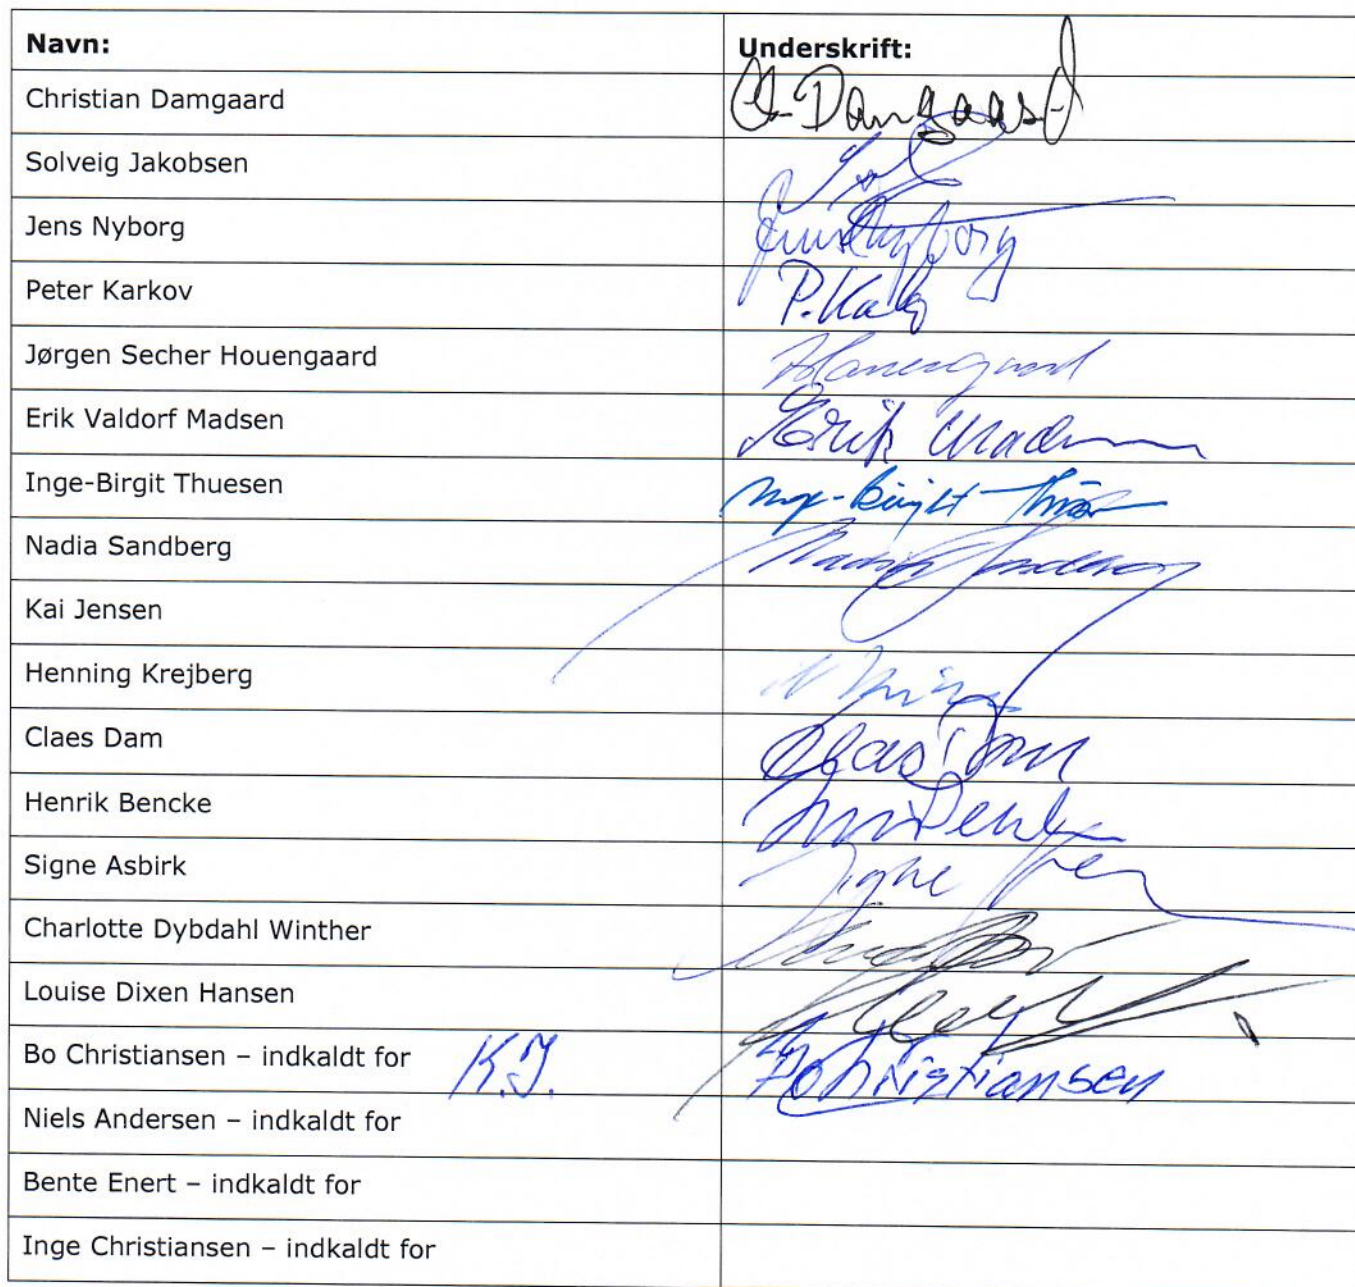 Navn: Underskrift:
Christian Damgaard Ch. Damgaard
Solveig Jakobsen
Jens Nyborg Jens Nyborg
Peter Karkov
Jørgen Secher Houengaard
Erik Valdorf Madsen Erik Madsen
Inge-Birgit Thuesen Inge-Birgit
Nadia Sandberg Nadia Sandberg
Kai Jensen
Henning Krejberg
Claes Dam Claes Dam
Henrik Bencke
Signe Asbirk Signe
Charlotte Dybdahl Winther
Louise Dixen Hansen
Bo Christiansen – indkaldt for K.J. Bo Christiansen
Niels Andersen – indkaldt for
Bente Enert – indkaldt for
Inge Christiansen – indkaldt for